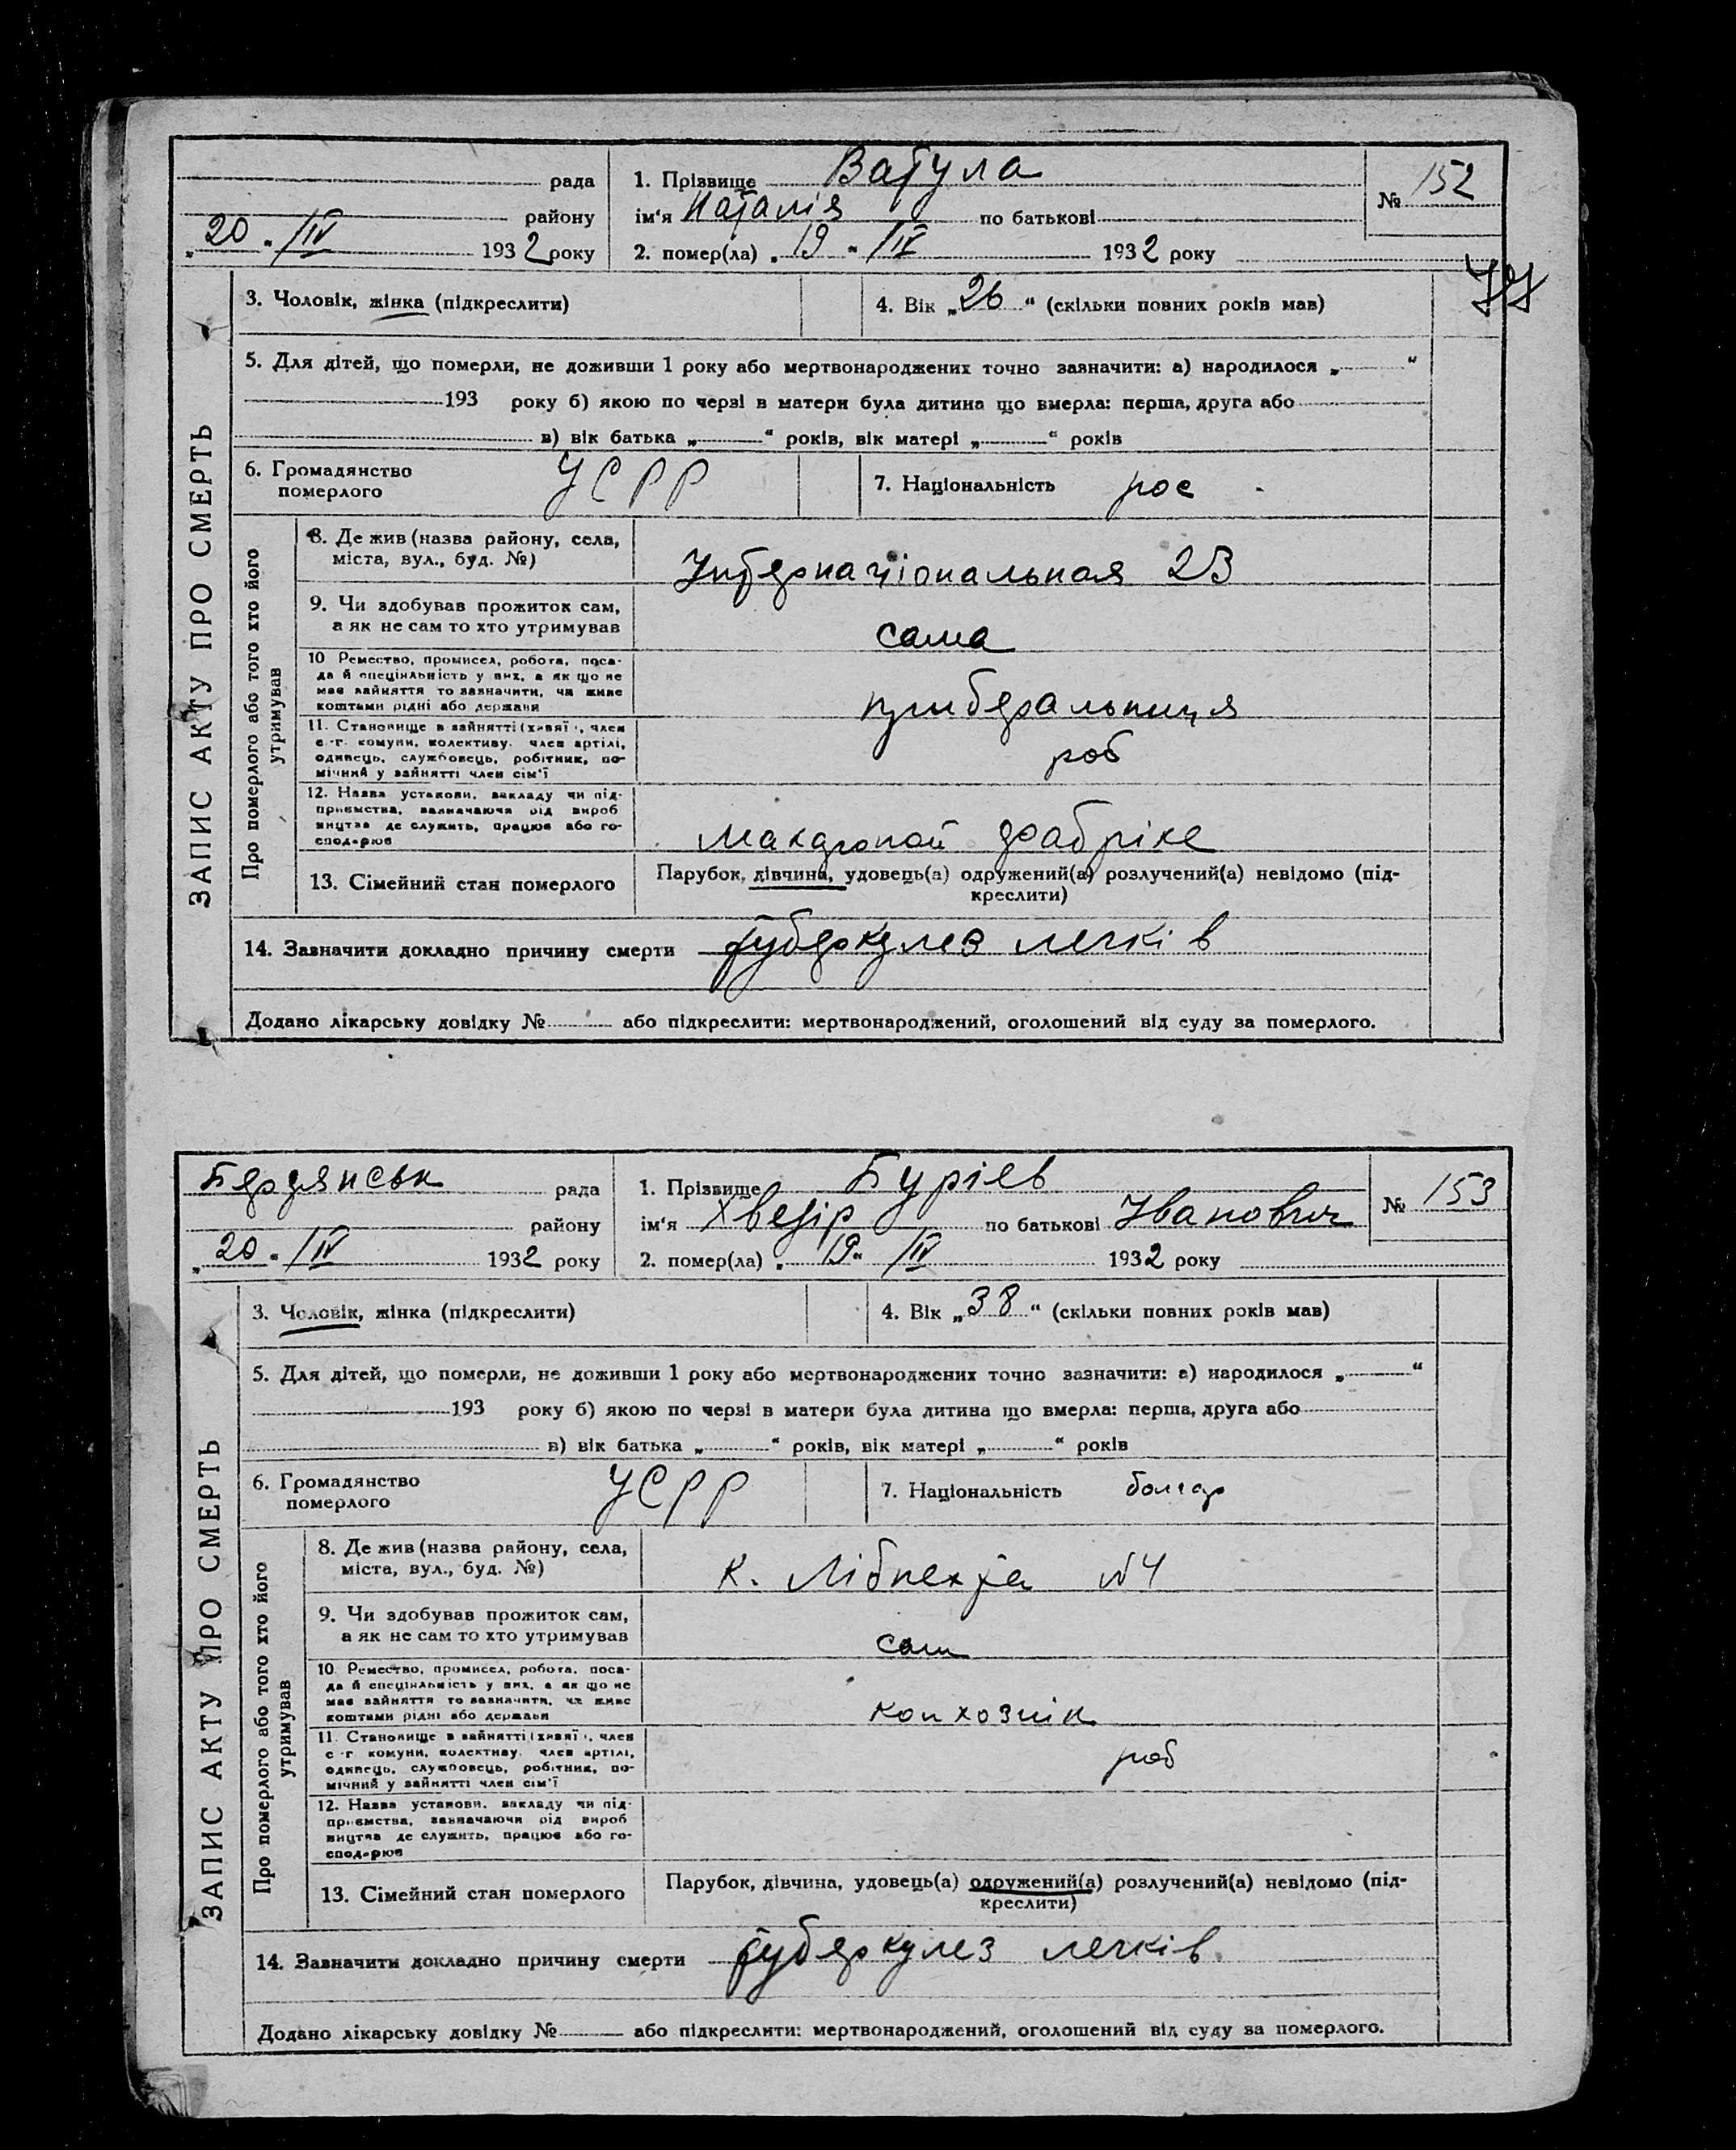 рада
1. Прізвище Ватула
№ 152
району
ім'я Наталія по батькові
„ 20 " /IV 1932 року
2. помер(ла) „ 19 " /IV 1932 року
77
ЗАПИС АКТУ ПРО СМЕРТЬ
3. Чоловік, жінка (підкреслити)
4. Вік „ 26 " (скільки повних років мав)
5. Для дітей, що померли, не доживши 1 року або мертвонароджених точно зазначити: а) народилося „ "
193 року б) якою по черзі в матери була дитина що вмерла: перша, друга або
в) вік батька „ " років, вік матері „ " років
6. Громадянство
померлого УСРР
7. Національність рос
Про померлого або того хто його
утримував
8. Де жив (назва району, села,
міста, вул., буд. №)
Інтернаціональная 23
9. Чи здобував прожиток сам,
а як не сам то хто утримував
сама
10 Ремество, промисел, робота, поса-
да й спеціяльність у них, а як що не
має зайняття то зазначити, чи живе
коштами рідні або держави
прибіральниця
11. Становище в зайнятті (хазяї), член
с.-г. комуни, колективу, член артілі,
одинець, службовець, робітник, по-
мічний у зайнятті член сім'ї
роб
12. Назва установи, закладу чи під-
приємства, зазначаючи рід вироб
ництва де служить, працює або го-
сподарює
Макароной фабріке
13. Сімейний стан померлого
Парубок, дівчина, удовець(а) одружений(а) розлучений(а) невідомо (під-
креслити)
14. Зазначити докладно причину смерти туберкулез легків
Додано лікарську довідку № або підкреслити: мертвонароджений, оголошений від суду за померлого.
Бердянськ рада
1. Прізвище Буріев
№ 153
району
ім'я Хведір по батькові Іванович
„ 20 " /IV 1932 року
2. помер(ла) „ 19 " /IV 1932 року
ЗАПИС АКТУ ПРО СМЕРТЬ
3. Чоловік, жінка (підкреслити)
4. Вік „ 38 " (скільки повних років мав)
5. Для дітей, що померли, не доживши 1 року або мертвонароджених точно зазначити: а) народилося „ "
193 року б) якою по черзі в матери була дитина що вмерла: перша, друга або
в) вік батька „ " років, вік матері „ " років
6. Громадянство
померлого УСРР
7. Національність болгар
Про померлого або того хто його
утримував
8. Де жив (назва району, села,
міста, вул., буд. №)
К. Лібнехта №4
9. Чи здобував прожиток сам,
а як не сам то хто утримував
сам
10. Ремество, промисел, робота, поса-
да й спеціяльність у них, а як що не
має зайняття то зазначити, чи живе
коштами рідні або держави
колхознік
11. Становище в зайнятті (хазяї), член
с.-г. комуни, колективу, член артілі,
одинець, службовець, робітник, по-
мічний у зайнятті член сім'ї
роб
12. Назва установи, закладу чи під-
приємства, зазначаючи рід вироб
ництва де служить, працює або го-
сподарює
13. Сімейний стан померлого
Парубок, дівчина, удовець(а) одружений(а) розлучений(а) невідомо (під-
креслити)
14. Зазначити докладно причину смерти туберкулез легків
Додано лікарську довідку № або підкреслити: мертвонароджений, оголошений від суду за померлого.